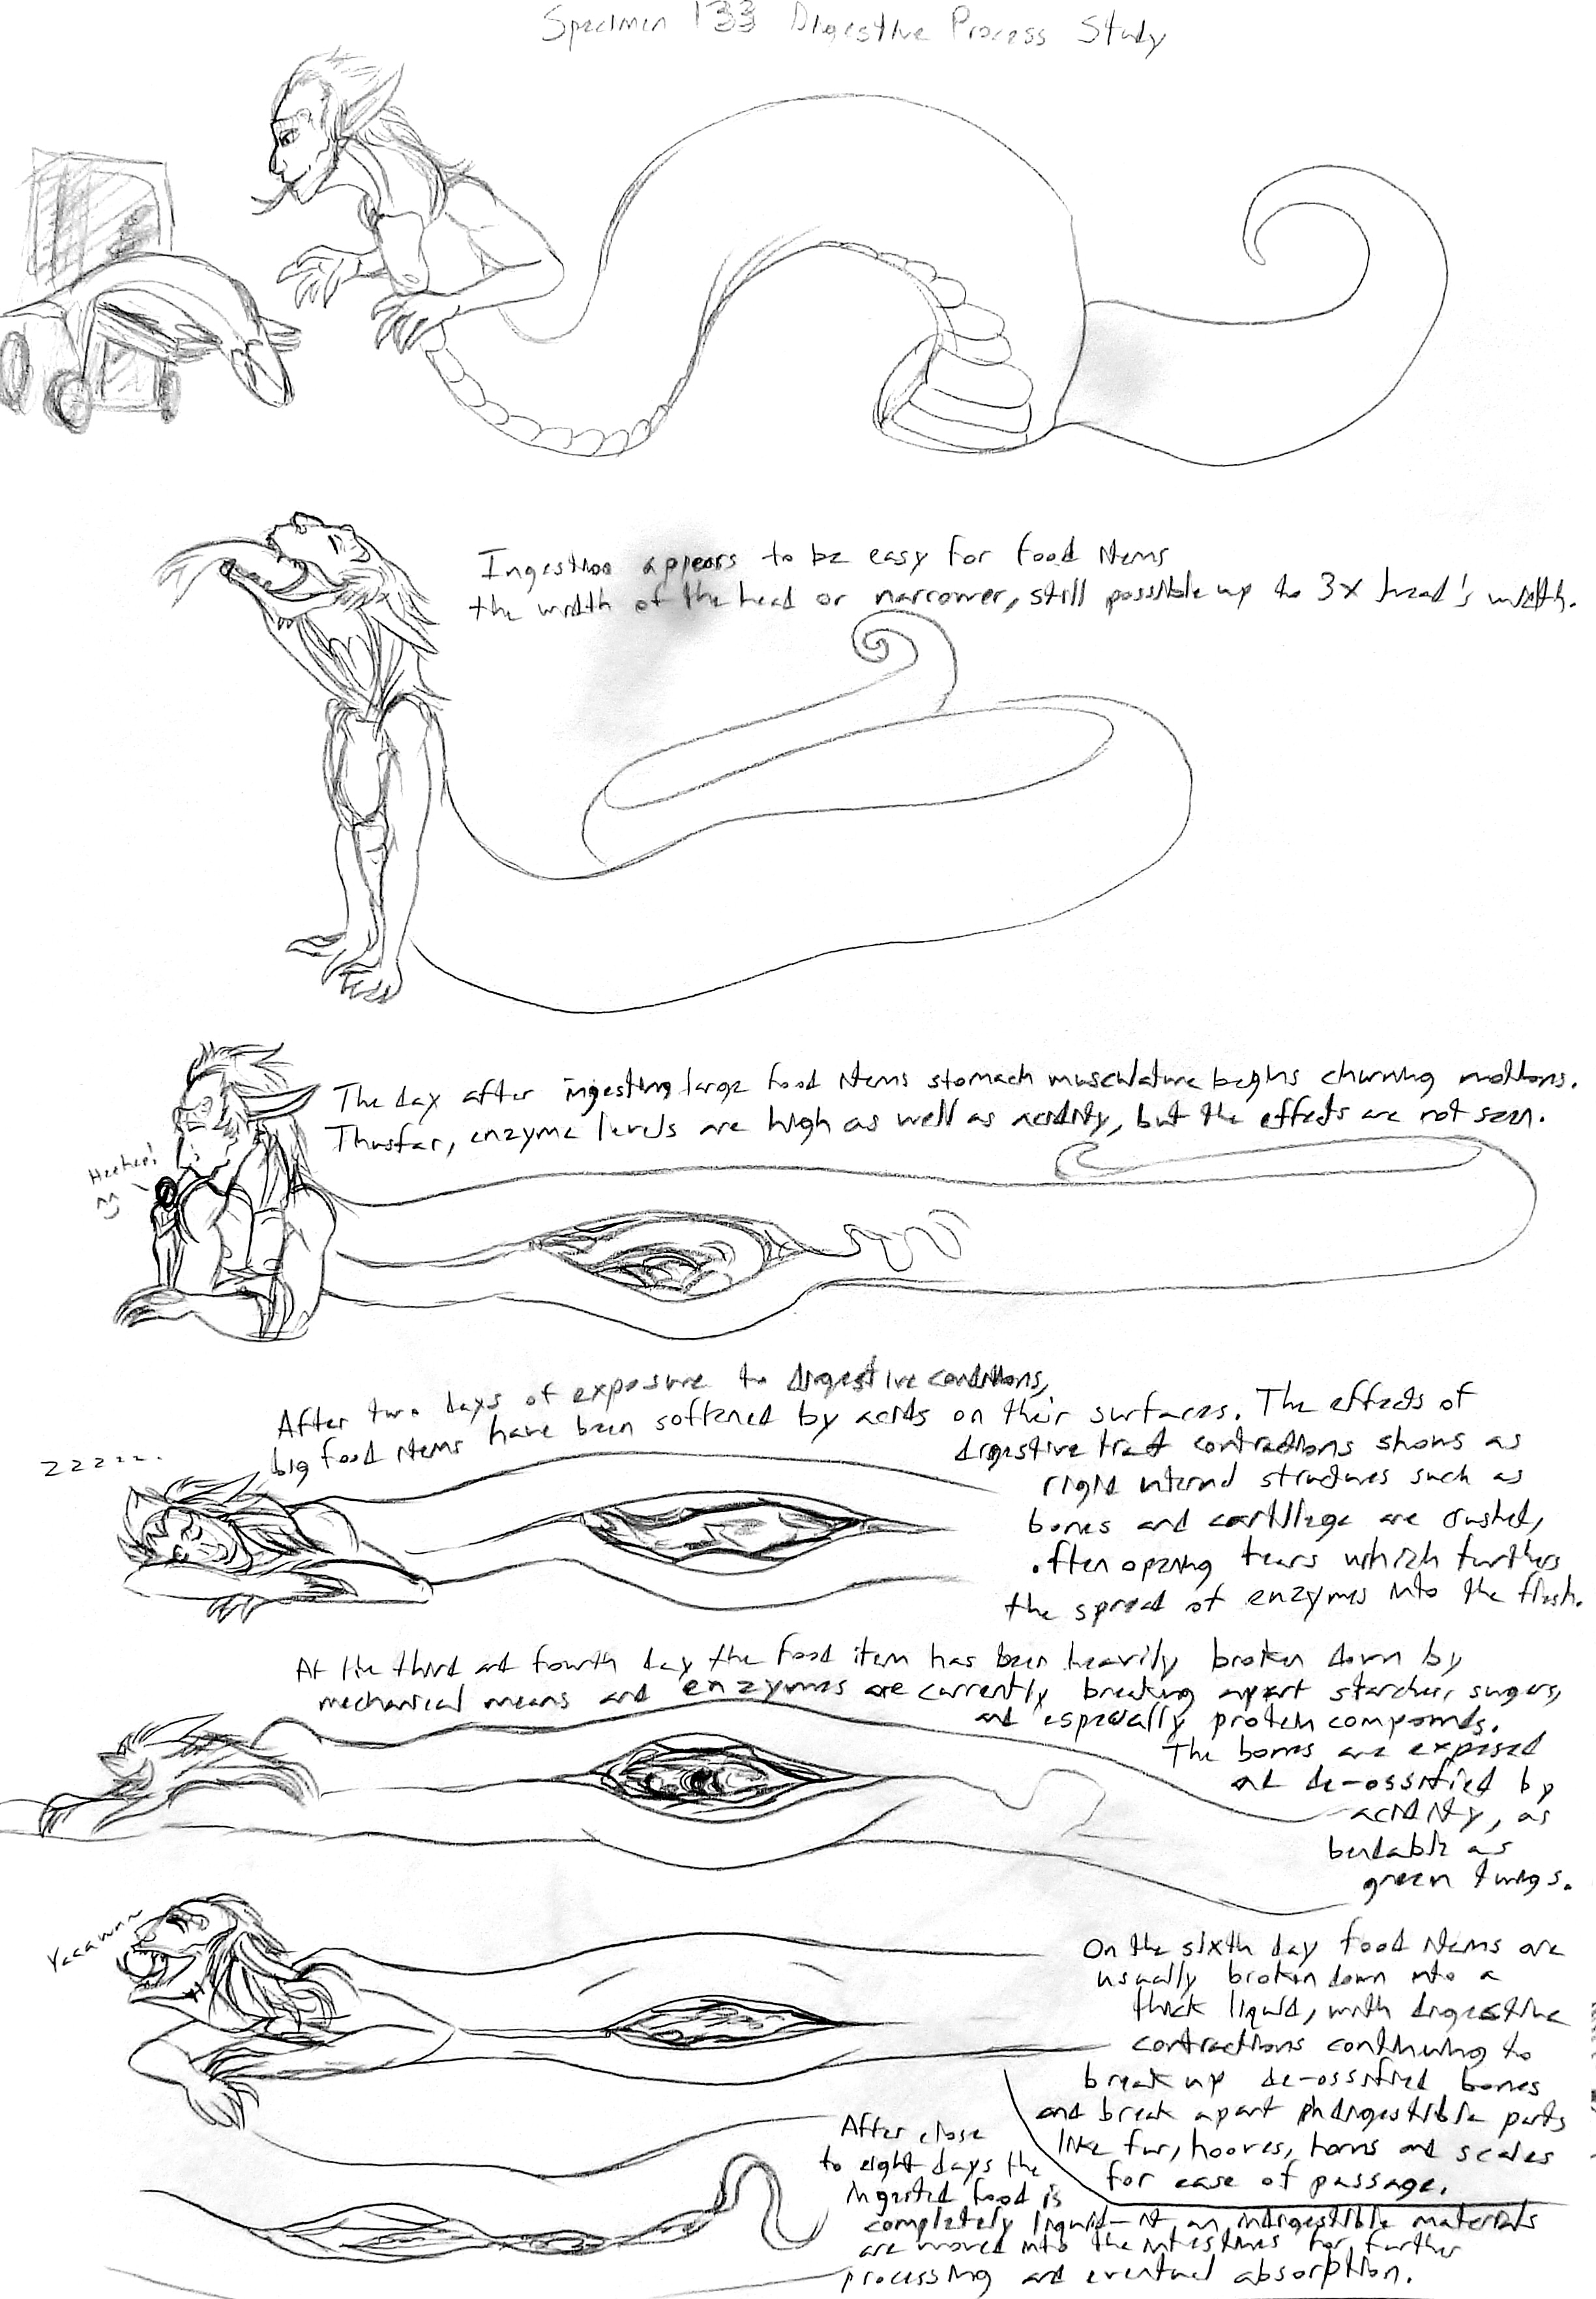 Specimen 133 Digestive Process Study
Ingestion appears to be easy for food items
the width of the head or narrower, still possible up to 3x head's width.
The day after ingesting large food items stomach musculature begins churning motions.
Thusfar, enzyme levels are high as well as acidity, but the effects are not seen.
Heehee!
^^
After two days of exposure to digestive conditions,
big food items have been softened by acids on their surfaces. The effects of
digestive tract contractions shows as
rigid internal structures such as
bones and cartillage are crushed,
often opening tears which furthers
the spread of enzymes into the flesh.
zzzzz..
At the third and fourth day the food item has been heavily broken down by
mechanical means and enzymes are currently breaking apart starches, sugars,
and especially protein compounds.
The bones are exposed
and de-ossified by
acidity, as
bendable as
green twigs.
Yeeawnn
On the sixth day food items are
usually broken down into a
thick liquid, with digestive
contractions continuing to
break up de-ossified bones
and break apart indigestible parts
like fur, hooves, horns and scales
for ease of passage.
After close
to eight days the
ingested food is
completely liquid- it an indigestible materials
are moved into the intestines for further
processing and eventual absorption.